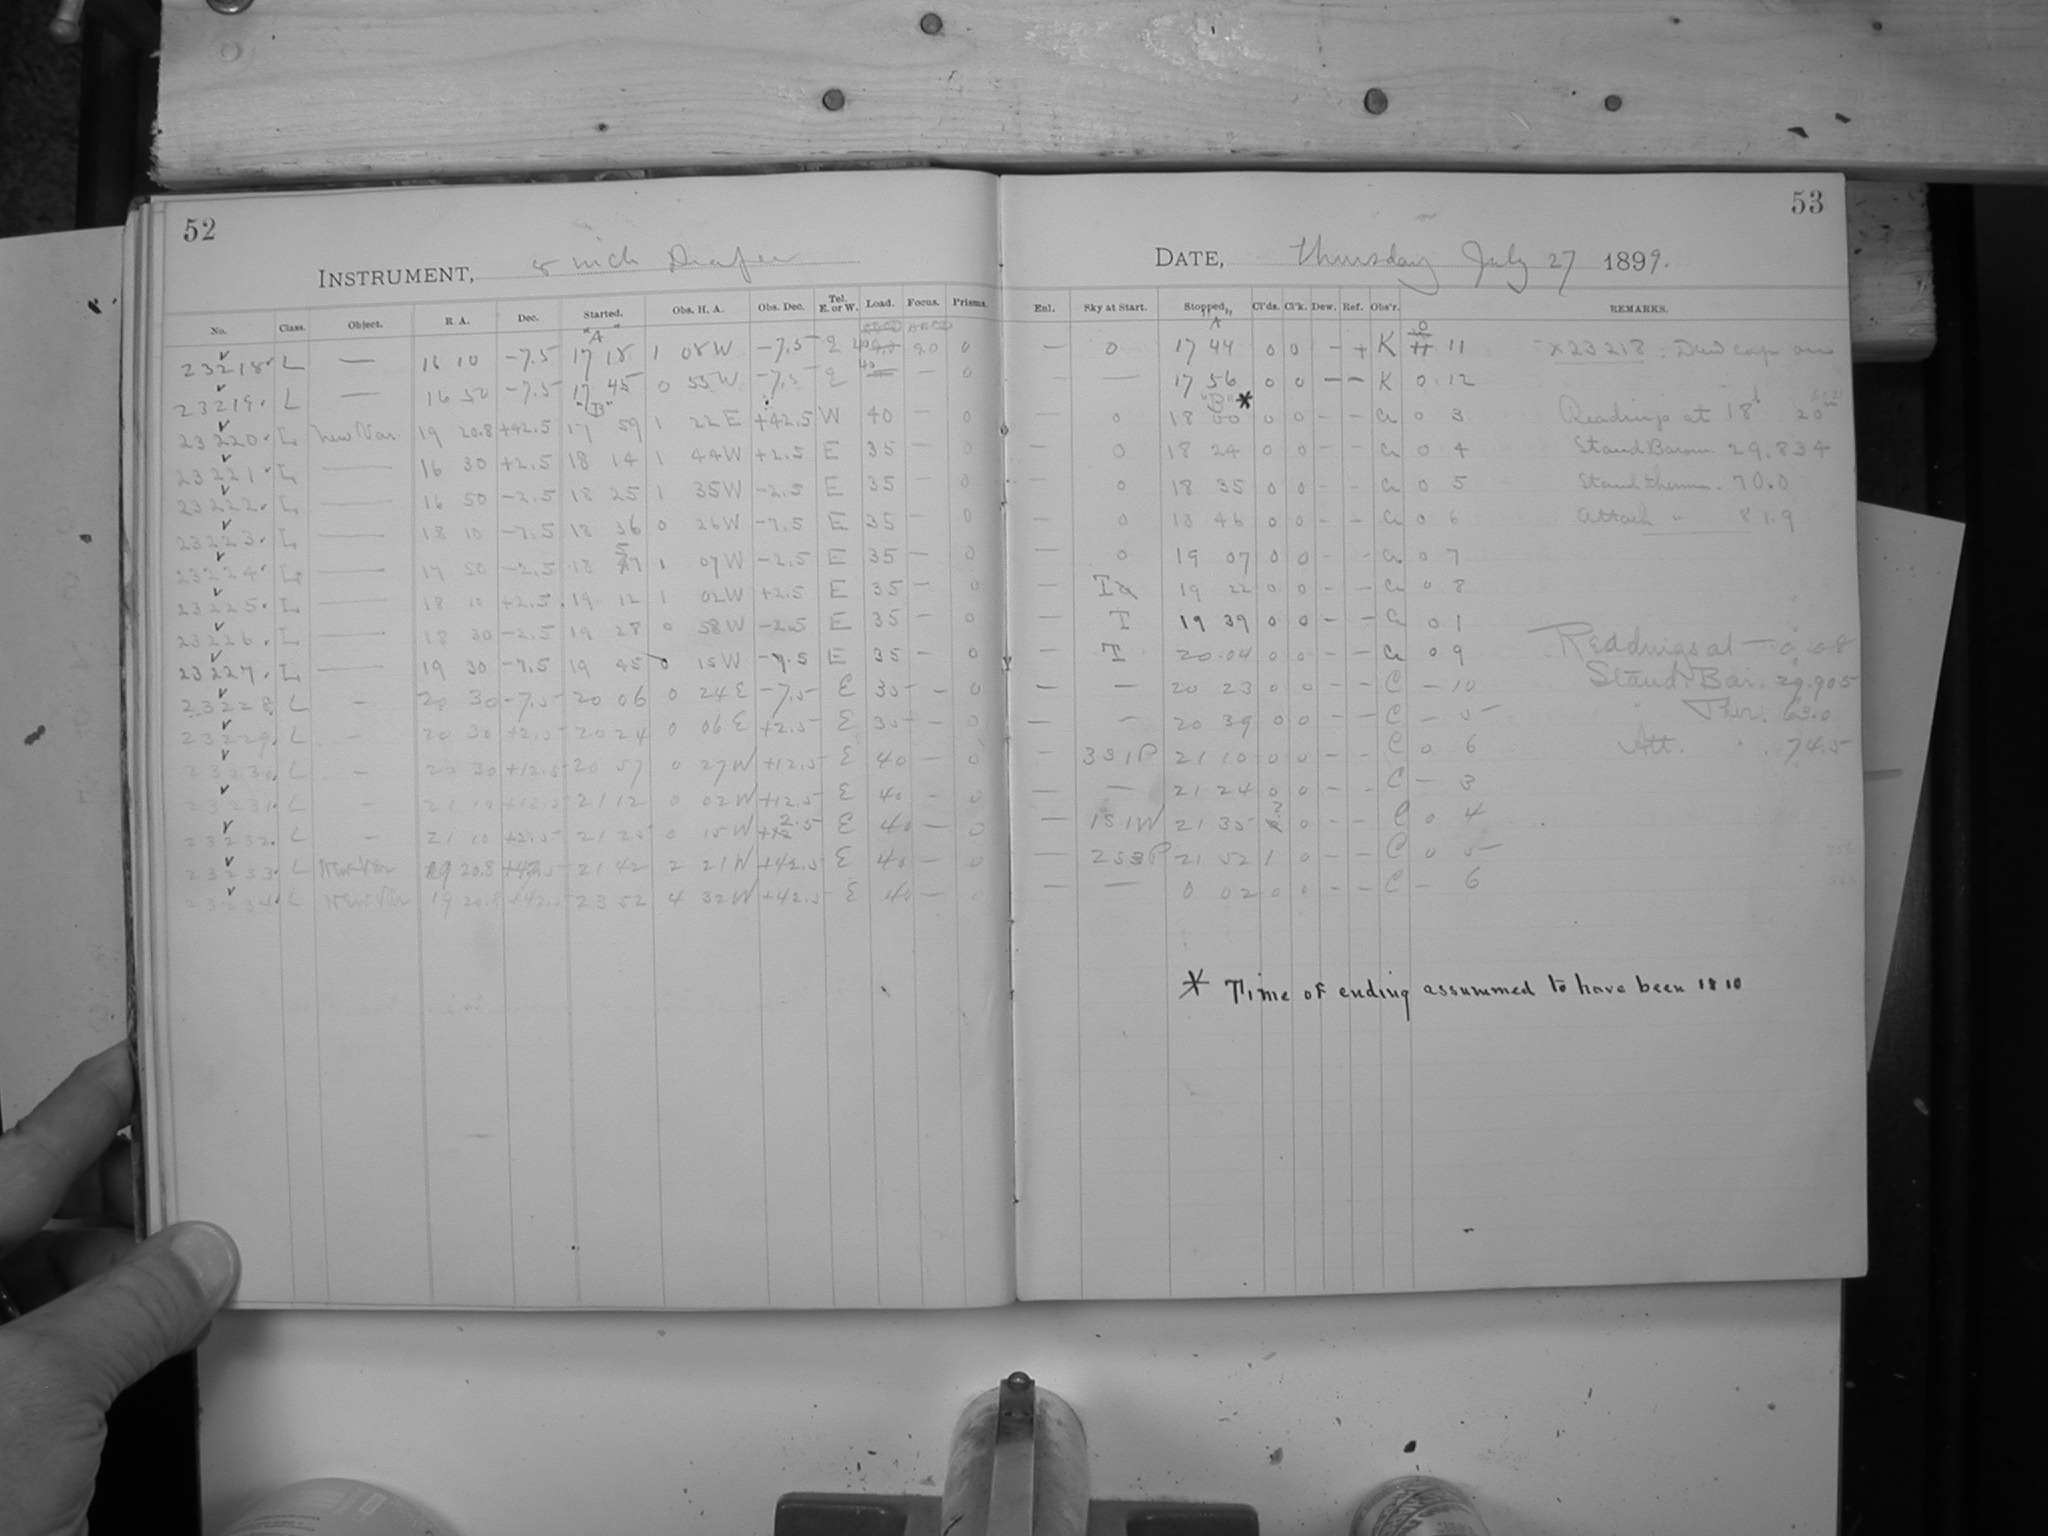 52
INSTRUMENT, 8 inch Draper
No. Class. Object. R. A. Dec. Started. Obs. H. A. Obs. Dec. Tel. E. or W. Load. Focus. Prisms.
"A"
23218 L — 16 10 −7.5 17 18 1 08W −7.5 E 40 90 0
23219 L — 16 50 −7.5 17 45 0 55W −7.5 E 40 — 0
"B"
23220 L New Var. 19 20.8 +42.5 17 59 1 22E +42.5 W 40 — 0
23221 L — 16 30 +2.5 18 14 1 44W +2.5 E 35 — 0
23222 L — 16 50 −2.5 18 25 1 35W −2.5 E 35 — 0
23223 L — 18 10 −7.5 18 36 0 26W −7.5 E 35 — 0
23224 L — 17 50 −2.5 18 57 1 07W −2.5 E 35 — 0
23225 L — 18 10 +2.5 19 12 1 02W +2.5 E 35 — 0
23226 L — 18 30 −2.5 19 28 0 58W −2.5 E 35 — 0
23227 L — 19 30 −7.5 19 45 0 15W −7.5 E 35 — 0
23228 L — 20 30 −7.5 20 06 0 24E −7.5 E 35 — 0
23229 L — 20 30 +2.5 20 24 0 06E +2.5 E 35 — 0
23230 L — 20 30 +12.5 20 57 0 27W +12.5 E 40 — 0
23231 L — 21 10 +12.5 21 12 0 02W +12.5 E 40 — 0
23232 L — 21 10 +2.5 21 25 0 15W +2.5 E 40 — 0
23233 L New Var 19 20.8 +42.5 21 42 2 21W +42.5 E 40 — 0
23234 L New Var 19 20.8 +42.5 23 52 4 32W +42.5 E 40 — 0
53
DATE, Thursday July 27 1899.
Enl. Sky at Start. Stopped. Cl'ds. Cl'k. Dew. Ref. Obs'r. REMARKS.
"A"
— 0 17 44 0 0 – + K 0 11 x23218: Dew cap on
— — 17 56 0 0 – – K 0 12
"B" *
— 0 18 00 0 0 – – a 0 3 Readings at 18h 20m
— 0 18 24 0 0 – – a 0 4 Stand Barom. 29.834
— 0 18 35 0 0 – – a 0 5 Stand therm. 70.0
— 0 18 46 0 0 – – a 0 6 Attach " 81.9
— 0 19 07 0 0 – – a 0 7
— T 19 22 0 0 – – a 0 8
— T 19 39 0 0 – – a 0 1
— T 20 04 0 0 – – a 0 9 Readings at 0 08
— — 20 23 0 0 – – C – 10 Stand. Bar. 29.905
— — 20 39 0 0 – – C – 5 " Ther. 63.0
— 3S1P 21 10 0 0 – – C 0 6 Att. " . 74.5
— — 21 24 0 0 – – C – 3
— 1S1W 21 35 2 0 – – C 0 4
— 2S3P 21 52 1 0 – – C 0 5
— — 0 02 0 0 – – C – 6
* Time of ending assummed to have been 18 10